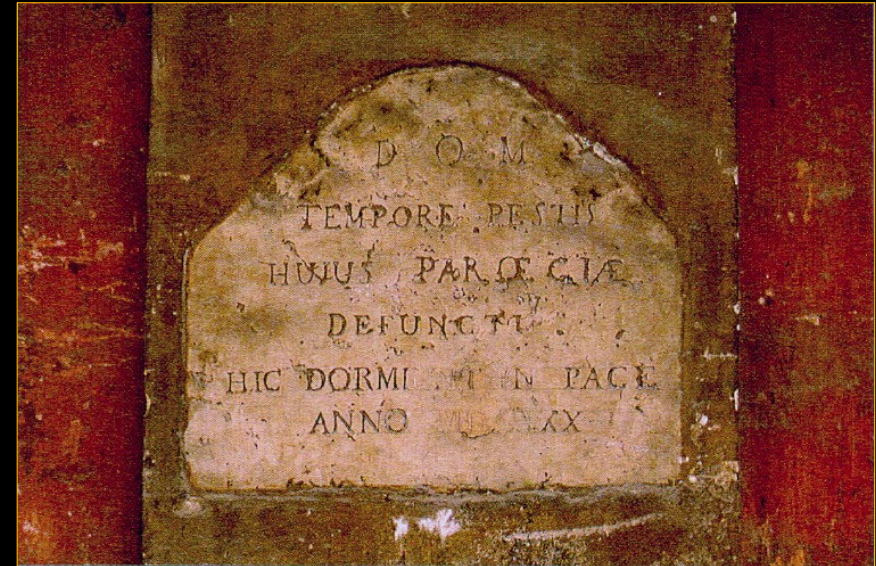 D O M
TEMPORE PESTIS
HUIUS PARŒCIÆ
DEFUNCTI
HIC PACE
ANNO